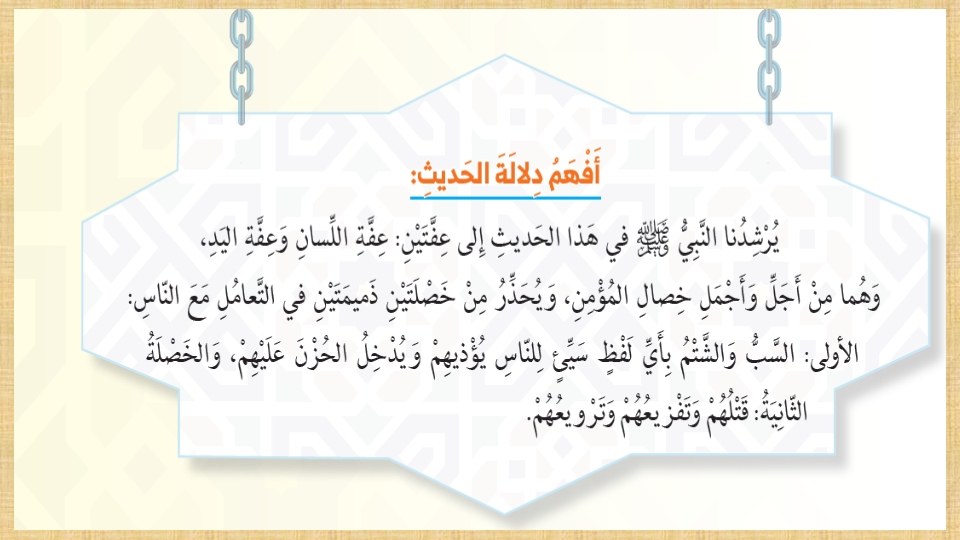 أَفْهَمُ دِلالَةَ الحَديثِ:
يُرْشِدُنا النَّبِيُّ ﷺ في هَذا الحَديثِ إِلى عِفَّتَيْنِ: عِفَّةِ اللِّسانِ وَعِفَّةِ اليَدِ،
وَهُما مِنْ أَجَلِّ وَأَجْمَلِ خِصالِ المُؤْمِنِ، وَيُحَذِّرُ مِنْ خَصْلَتَيْنِ ذَميمَتَيْنِ في التَّعامُلِ مَعَ النّاسِ:
الأولى: السَّبُّ وَالشَّتْمُ بِأَيِّ لَفْظٍ سَيِّئٍ لِلنّاسِ يُؤْذيهِمْ وَيُدْخِلُ الحُزْنَ عَلَيْهِمْ، وَالخَصْلَةُ
الثّانِيَةُ: قَتْلُهُمْ وَتَفْزيعُهُمْ وَتَرْويعُهُمْ.